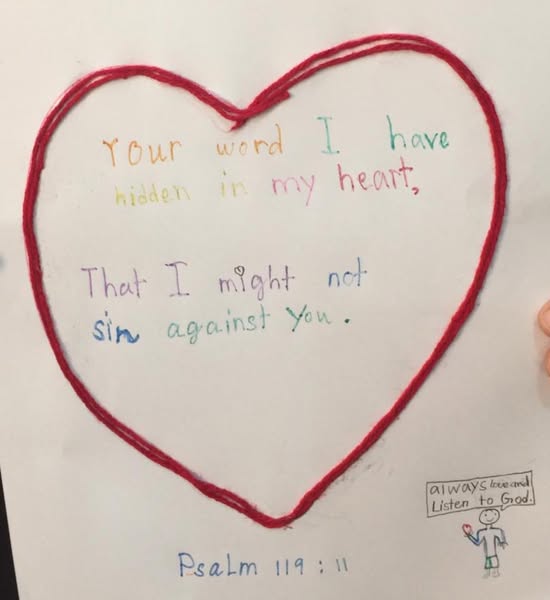 Your word I have
hidden in my heart,
That I might not
sin against you.
always love and
Listen to God.
Psalm 119 : 11